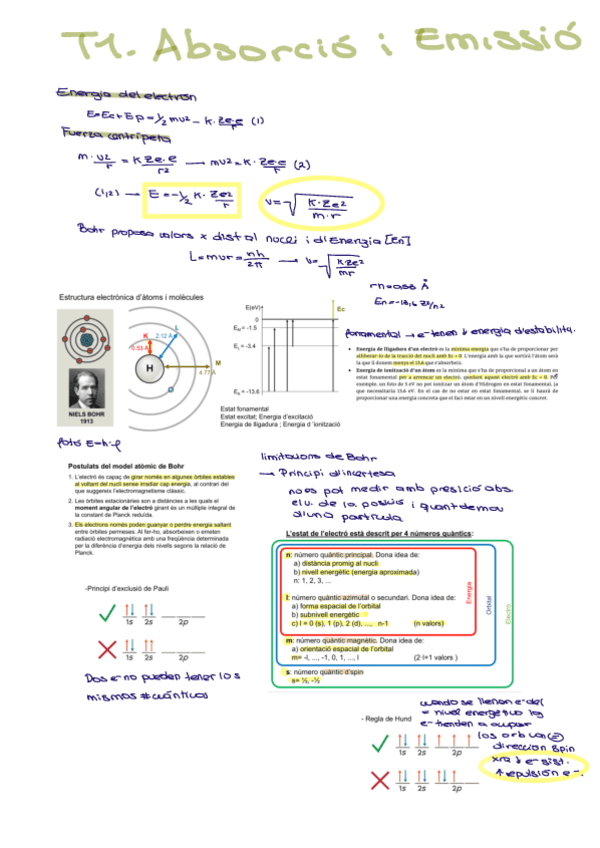 T1. Absorció i Emissió
Energia del electron
E=Ec+Ep=1/2 mv² - K·Ze·e/r (1)
Fuerza centripeta
m·v²/r = K Ze·e/r² → mv²=K·Ze·e/r (2)
(1,2) → E=-1/2 K·Ze²/r
v=√(K·Ze²/m·r)
Bohr proposa valors x dist al nucli i d'Energia [En]
L=mvr=nh/2π → v=√(K·Ze²/mr)
En=-13,6 Z²/n²
Estructura electrònica d'àtoms i molècules
NIELS BOHR
1913
K
L
M
0.53 Å
2.12 Å
4.77 Å
H
E(eV)
0
E_M = -1.5
E_L = -3.4
E_K = -13.6
Ec
Estat fonamental
Estat excitat; Energia d'excitació
Energia de lligadura ; Energia d´ionització
fonamental → e⁻ tenen ↓ energia d'estabilitat.
• Energia de lligadura d'un electró: es la mínima energia que s'ha de proporcionar per
alliberar-lo de la tracció del nucli amb Ec = 0. L'energia amb la que sortirà l'àtom serà
la que li donem menys el que s'absorbeix.
• Energia de ionització d'un àtom: es la mínima que s'ha de proporcional a un àtom en
estat fonamental per a arrencar un electró, quedant aquest electró amb Ec = 0. Per
exemple, un foto de 5 eV no pot ionitzar un àtom d'Hidrogen en estat fonamental, ja
que necessitaria 13.6 eV. En el cas de no estar en estat fonamental, se li haurà de
proporcionar una energia concreta que el faci estar en un nivell energètic concret.
fotó E=h·f
Postulats del model atòmic de Bohr
1. L'electró és capaç de girar només en algunes òrbites estables
al voltant del nucli sense irradiar cap energia, al contrari del
que suggereix l'electromagnetisme clàssic.
2. Les òrbites estacionàries son a distàncies a les quals el
moment angular de l'electró girant és un múltiple integral de
la constant de Planck reduïda.
3. Els electrons només poden guanyar o perdre energia saltant
entre òrbites permeses. Al fer-ho, absorbeixen o emeten
radiació electromagnètica amb una freqüència determinada
per la diferència d'energia dels nivells segons la relació de
Planck.
limitacions de Bohr
→ Principi d'incertesa
no es pot medir amb presició abs.
d'una particula
L'estat de l'electró està descrit per 4 números quàntics:
n: número quàntic principal. Dona idea de:
a) distància promig al nucli
b) nivell energètic (energia aproximada)
n: 1, 2, 3, ...
l: número quàntic azimutal o secundari. Dona idea de:
a) forma espacial de l'orbital
b) subnivell energètic
c) l = 0 (s), 1 (p), 2 (d), ..., n-1 (n valors)
m: número quàntic magnètic. Dona idea de:
a) orientació espacial de l'orbital
m= -l, ..., -1, 0, 1, ..., l (2·l+1 valors )
s: número quàntic d'spin
s= ½, -½
Energia
Orbital
Electró
-Principi d'exclusió de Pauli
1s 2s 2p
1s 2s 2p
Dos e⁻ no pueden tener los
mismos # cuánticos
- Regla de Hund
cuando se llenan e⁻ del
= nivel energético los
e⁻ tienden a ocupar
dirección spin
↑ repulsión e⁻.
1s 2s 2p
1s 2s 2p